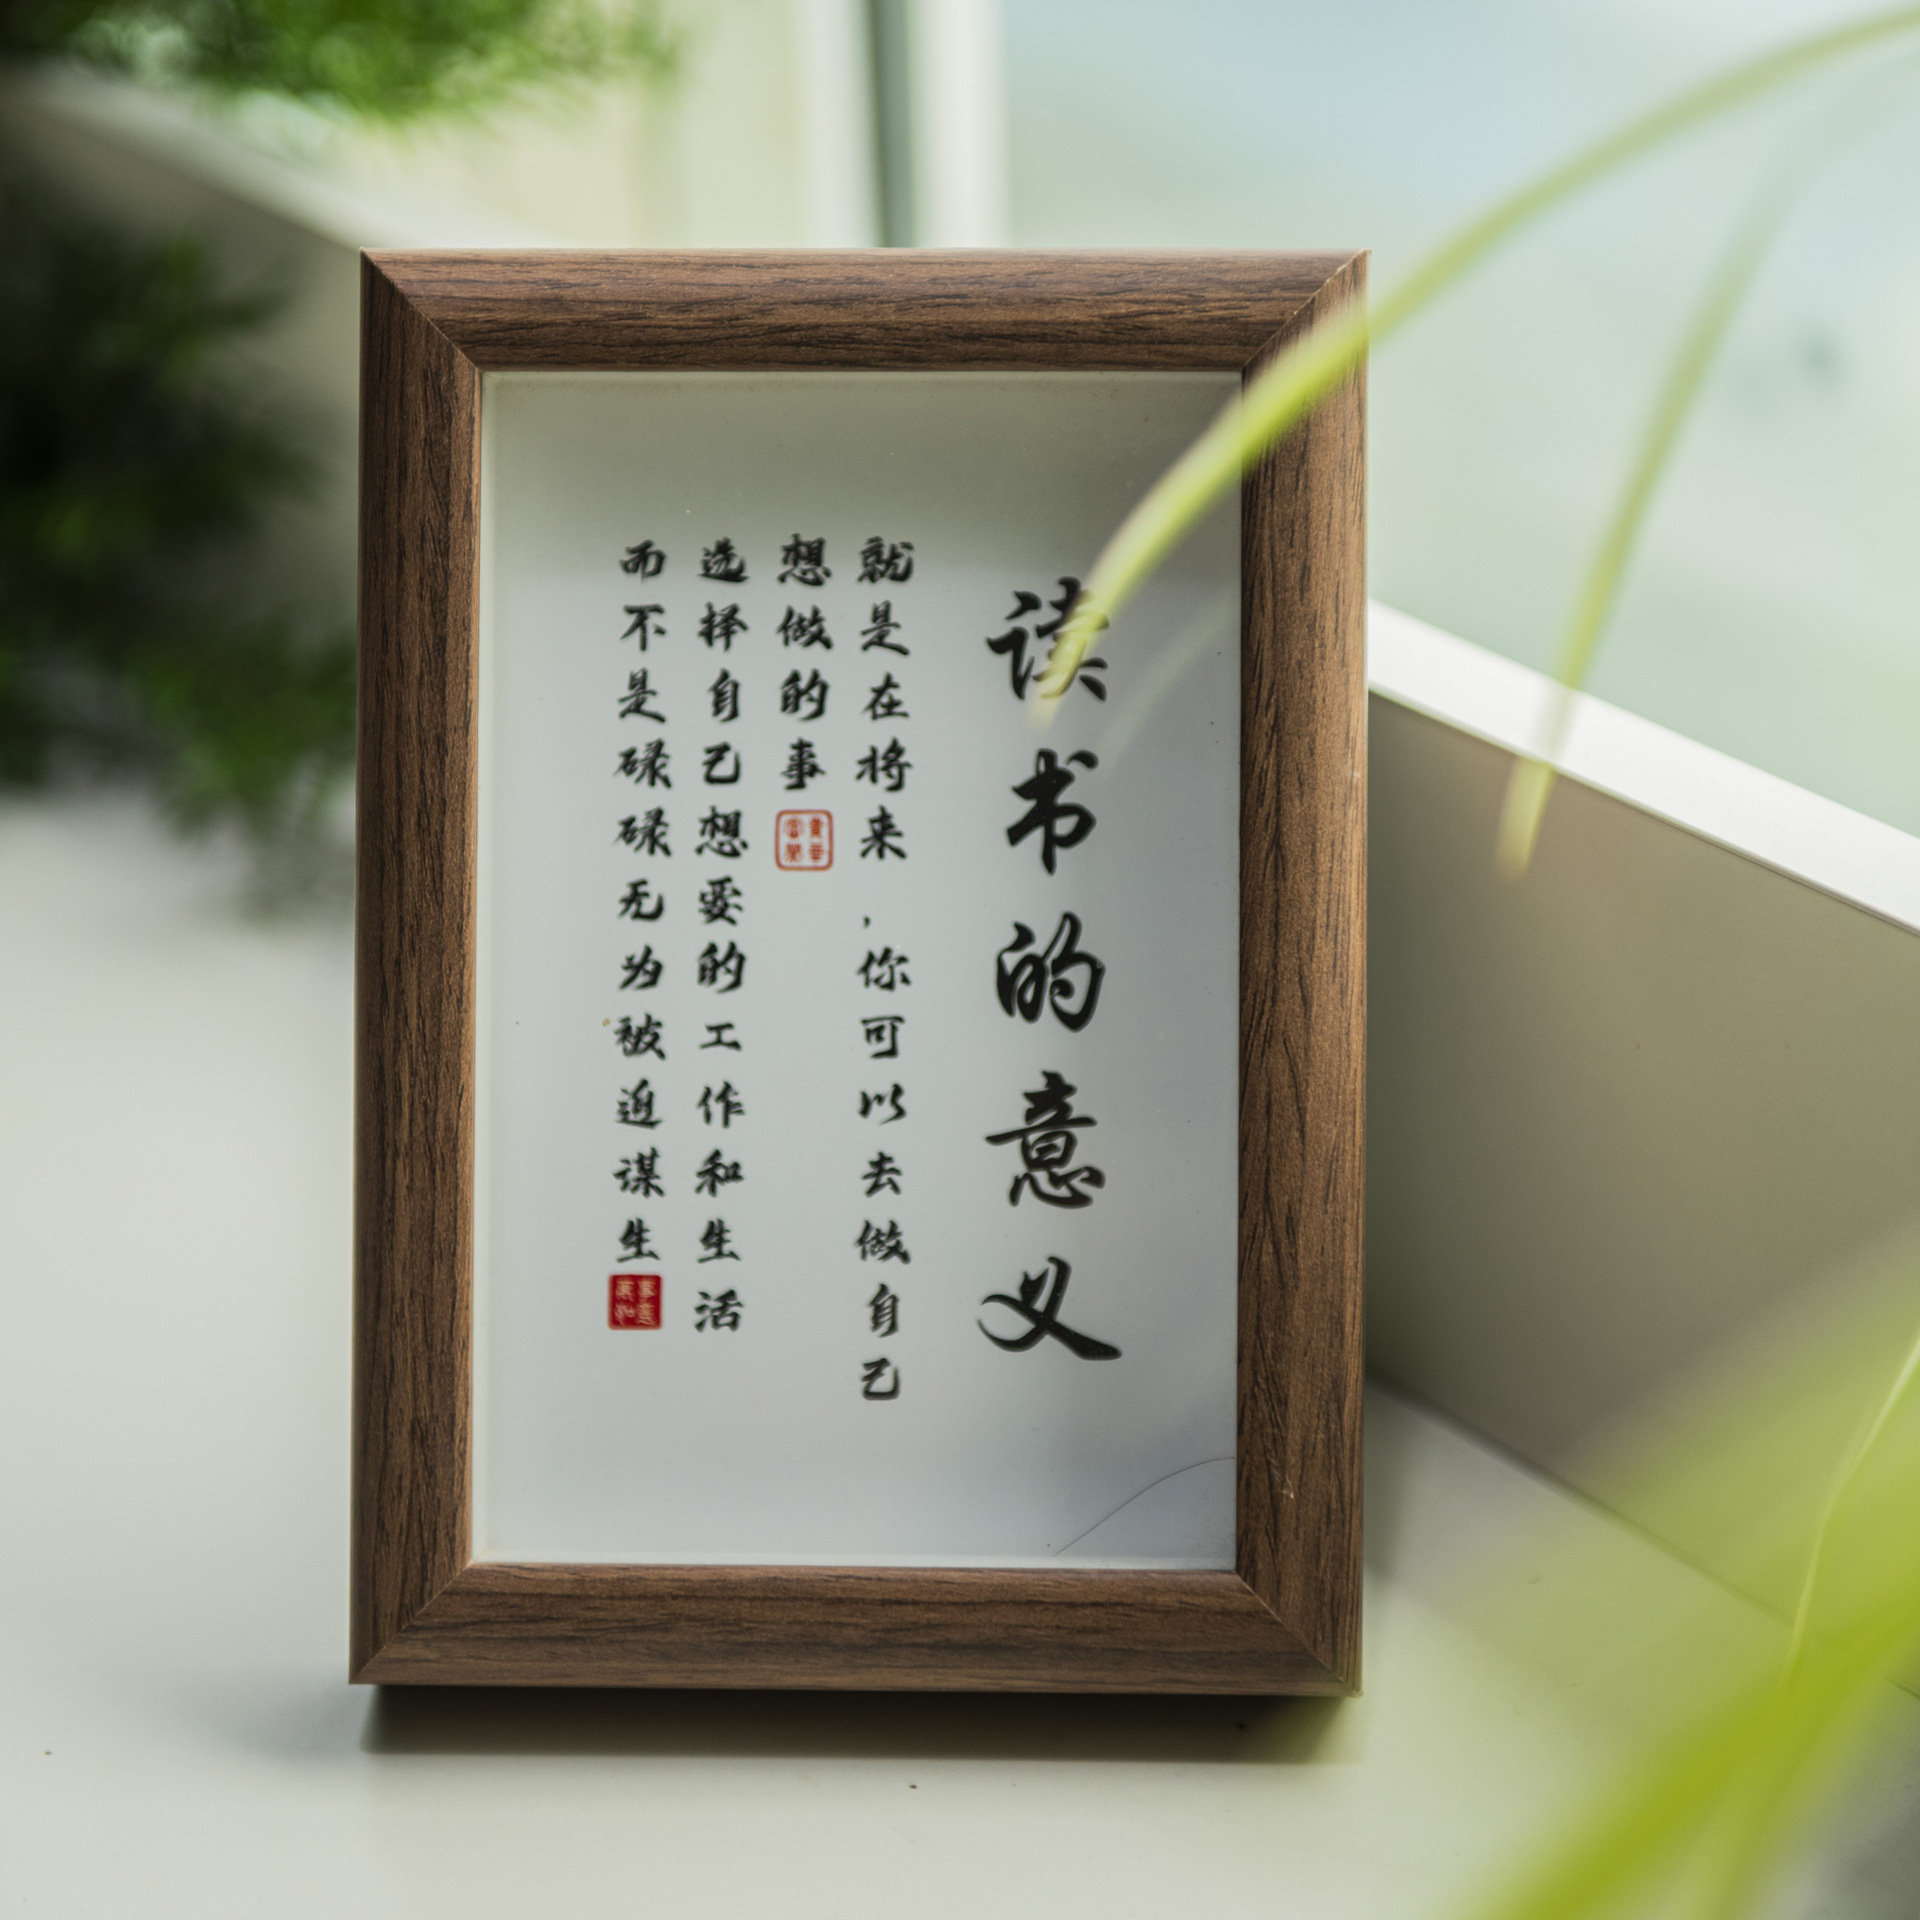 读书的意义
就是在将来，你可以去做自己
想做的事
选择自己想要的工作和生活
而不是碌碌无为被迫谋生